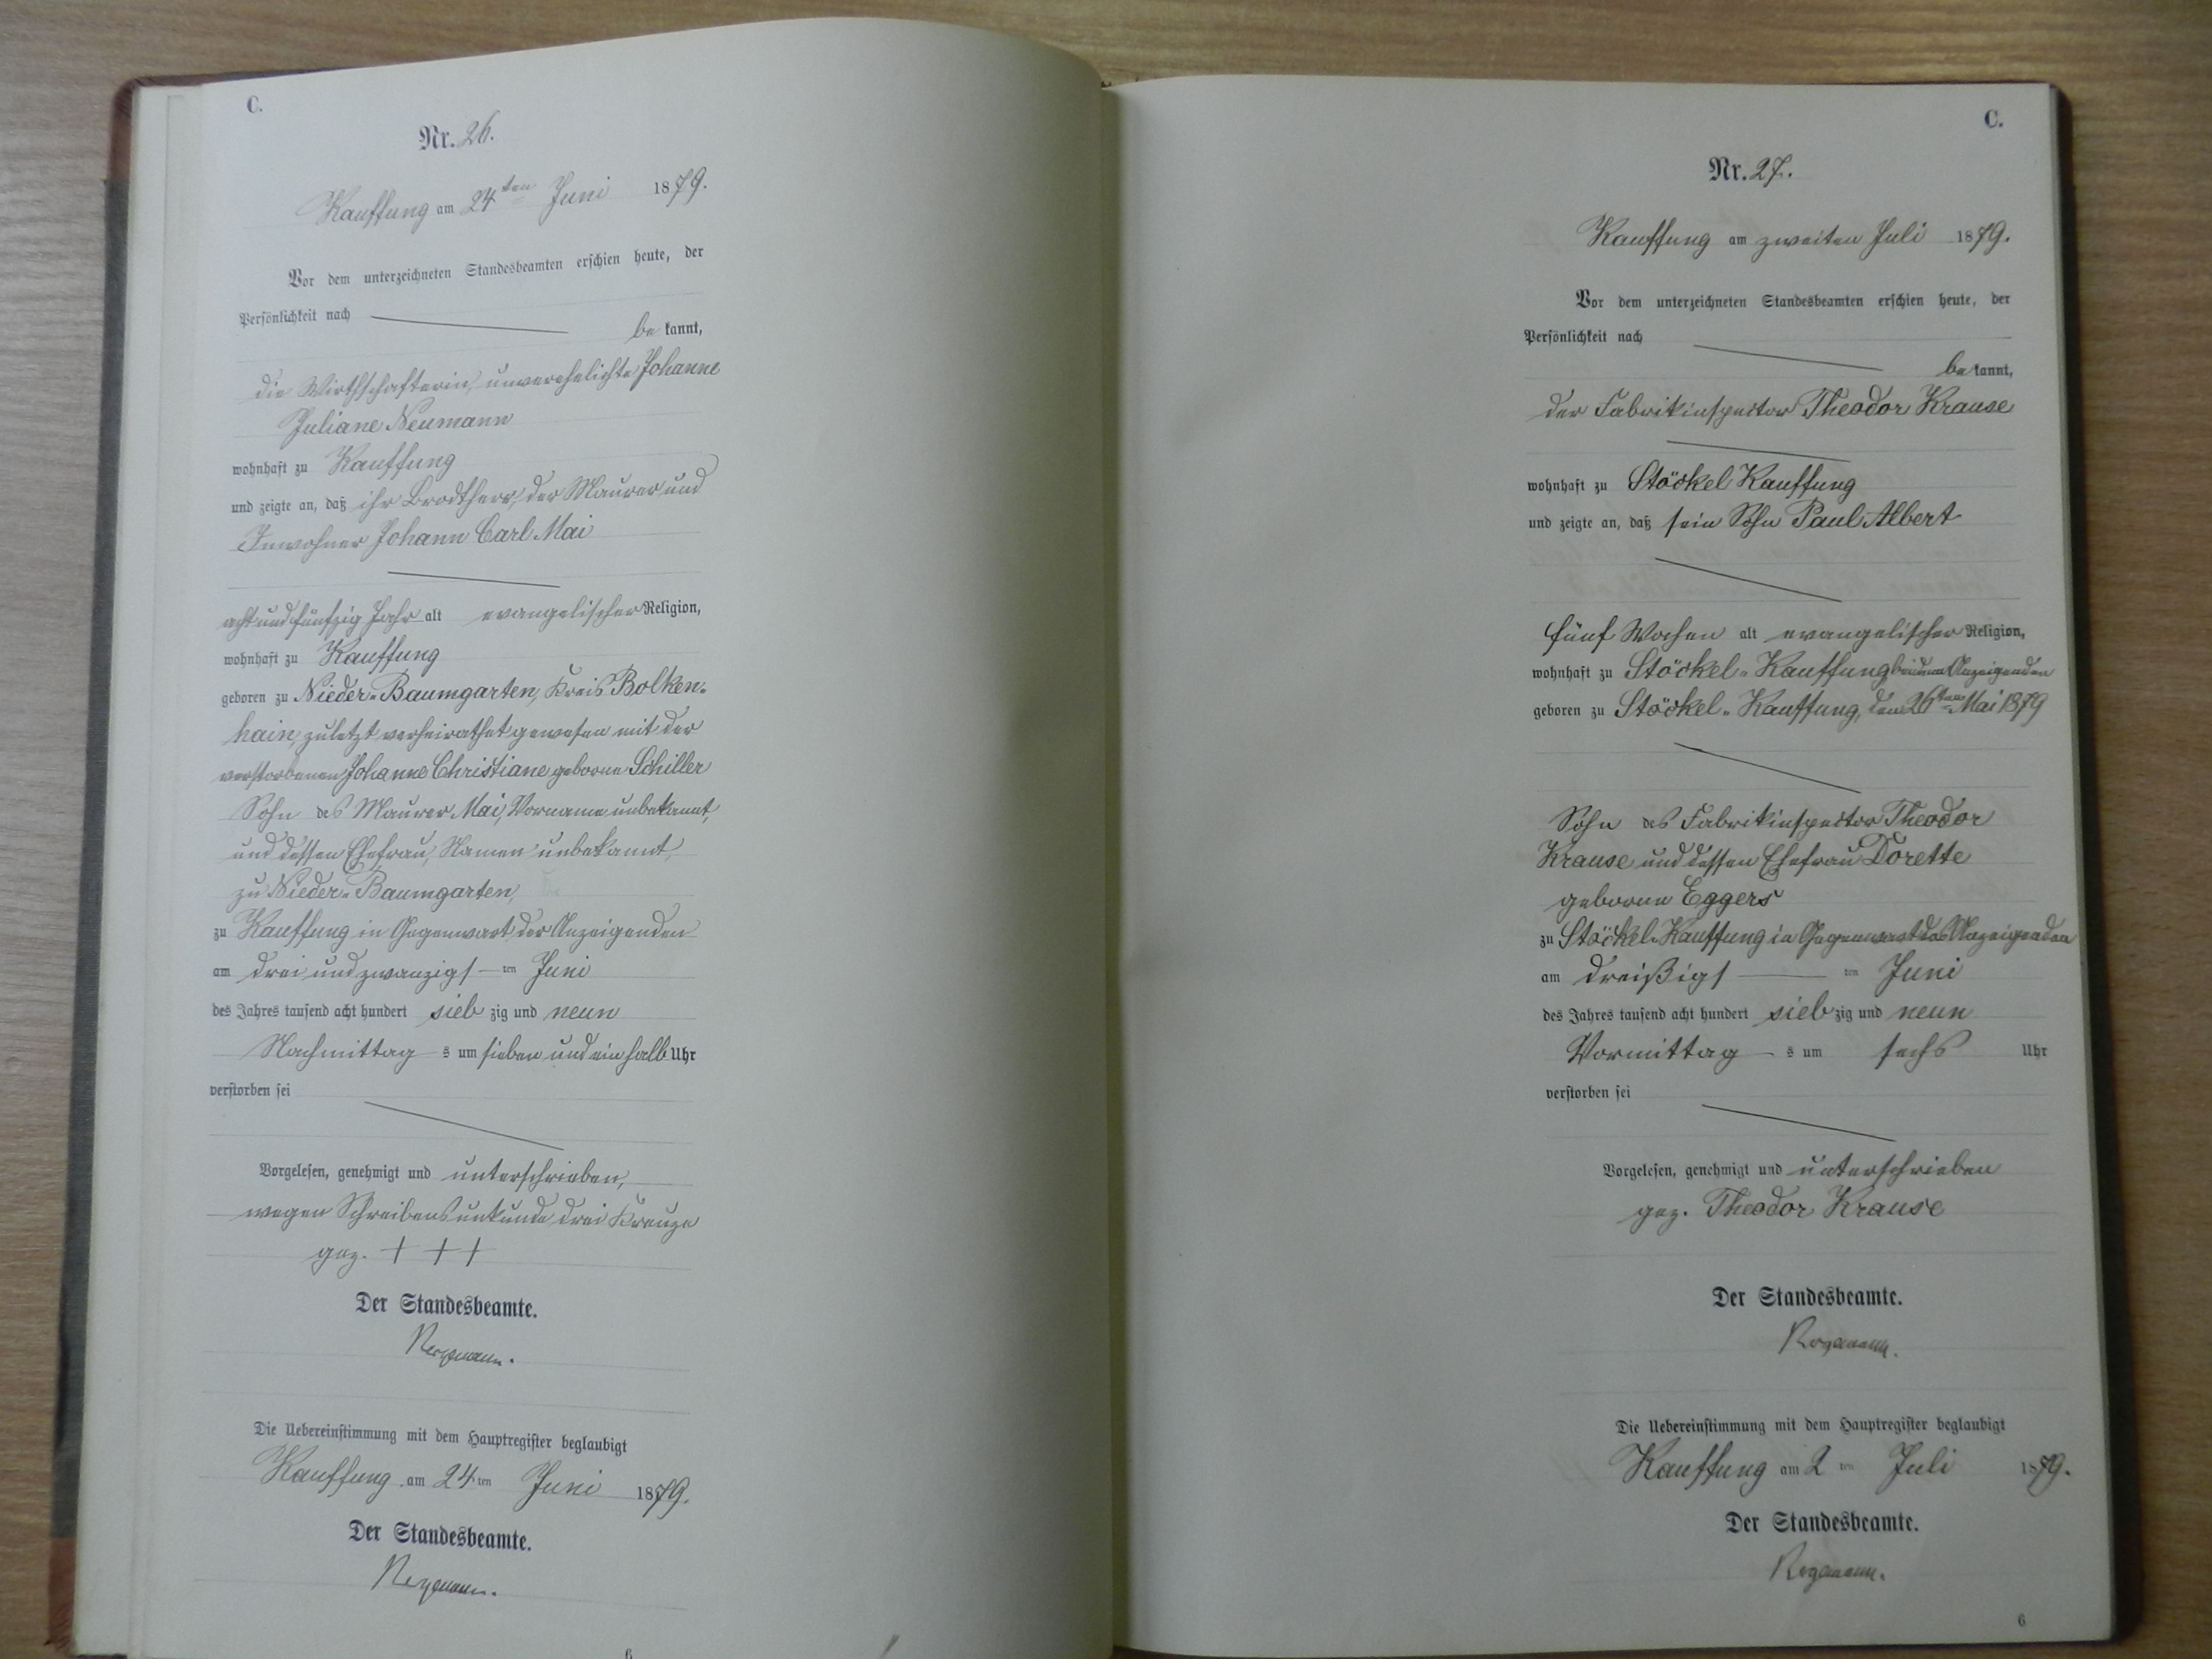 C.
Nr. 26.
Kauffung am 24ten Juni 1879.
Vor dem unterzeichneten Standesbeamten erschien heute, der
Persönlichkeit nach
be kannt,
die Wirthschafterin, unverehelichte Johanne
Juliane Neumann
wohnhaft zu Kauffung
und zeigte an, daß ihr Brodtherr, der Maurer und
Inwohner Johann Carl Mai
acht und fünfzig Jahr alt evangelischer Religion,
wohnhaft zu Kauffung
geboren zu Nieder-Baumgarten, Kreis Bolken-
hain, zuletzt verheirathet gewesen mit der
verstorbenen Johanne Christiane geborne Schiller
Sohn des Maurer Mai, Vorname unbekannt,
und dessen Ehefrau, Namen unbekannt,
zu Nieder-Baumgarten,
zu Kauffung in Gegenwart der Anzeigenden
am drei und zwanzigs ten Juni
des Jahres tausend acht hundert sieb zig und neun
Nachmittag s um sieben und ein halb Uhr
verstorben sei
Vorgelesen, genehmigt und unterschrieben,
wegen Schreibensunkunde drei Kreuze
gez. + + +
Der Standesbeamte.
Die Uebereinstimmung mit dem Hauptregister beglaubigt
Kauffung am 24 ten Juni 1879.
Der Standesbeamte.
6
C.
Nr. 27.
Kauffung am zweiten Juli 1879.
Vor dem unterzeichneten Standesbeamten erschien heute, der
Persönlichkeit nach
be kannt,
der Fabrikinspector Theodor Krause
wohnhaft zu Stöckel Kauffung
und zeigte an, daß sein Sohn Paul Albert
fünf Wochen alt evangelischer Religion,
wohnhaft zu Stöckel-Kauffung bei dem Anzeigenden
geboren zu Stöckel-Kauffung, den 26ten Mai 1879
Sohn des Fabrikinspector Theodor
Krause und dessen Ehefrau Dorette
geborne Eggers
zu Stöckel-Kauffung in Gegenwart des Anzeigenden
am dreißigs ten Juni
des Jahres tausend acht hundert sieb zig und neun
Vormittag s um sechs Uhr
verstorben sei
Vorgelesen, genehmigt und unterschrieben
gez. Theodor Krause
Der Standesbeamte.
Die Uebereinstimmung mit dem Hauptregister beglaubigt
Kauffung am 2 ten Juli 1879.
Der Standesbeamte.
6